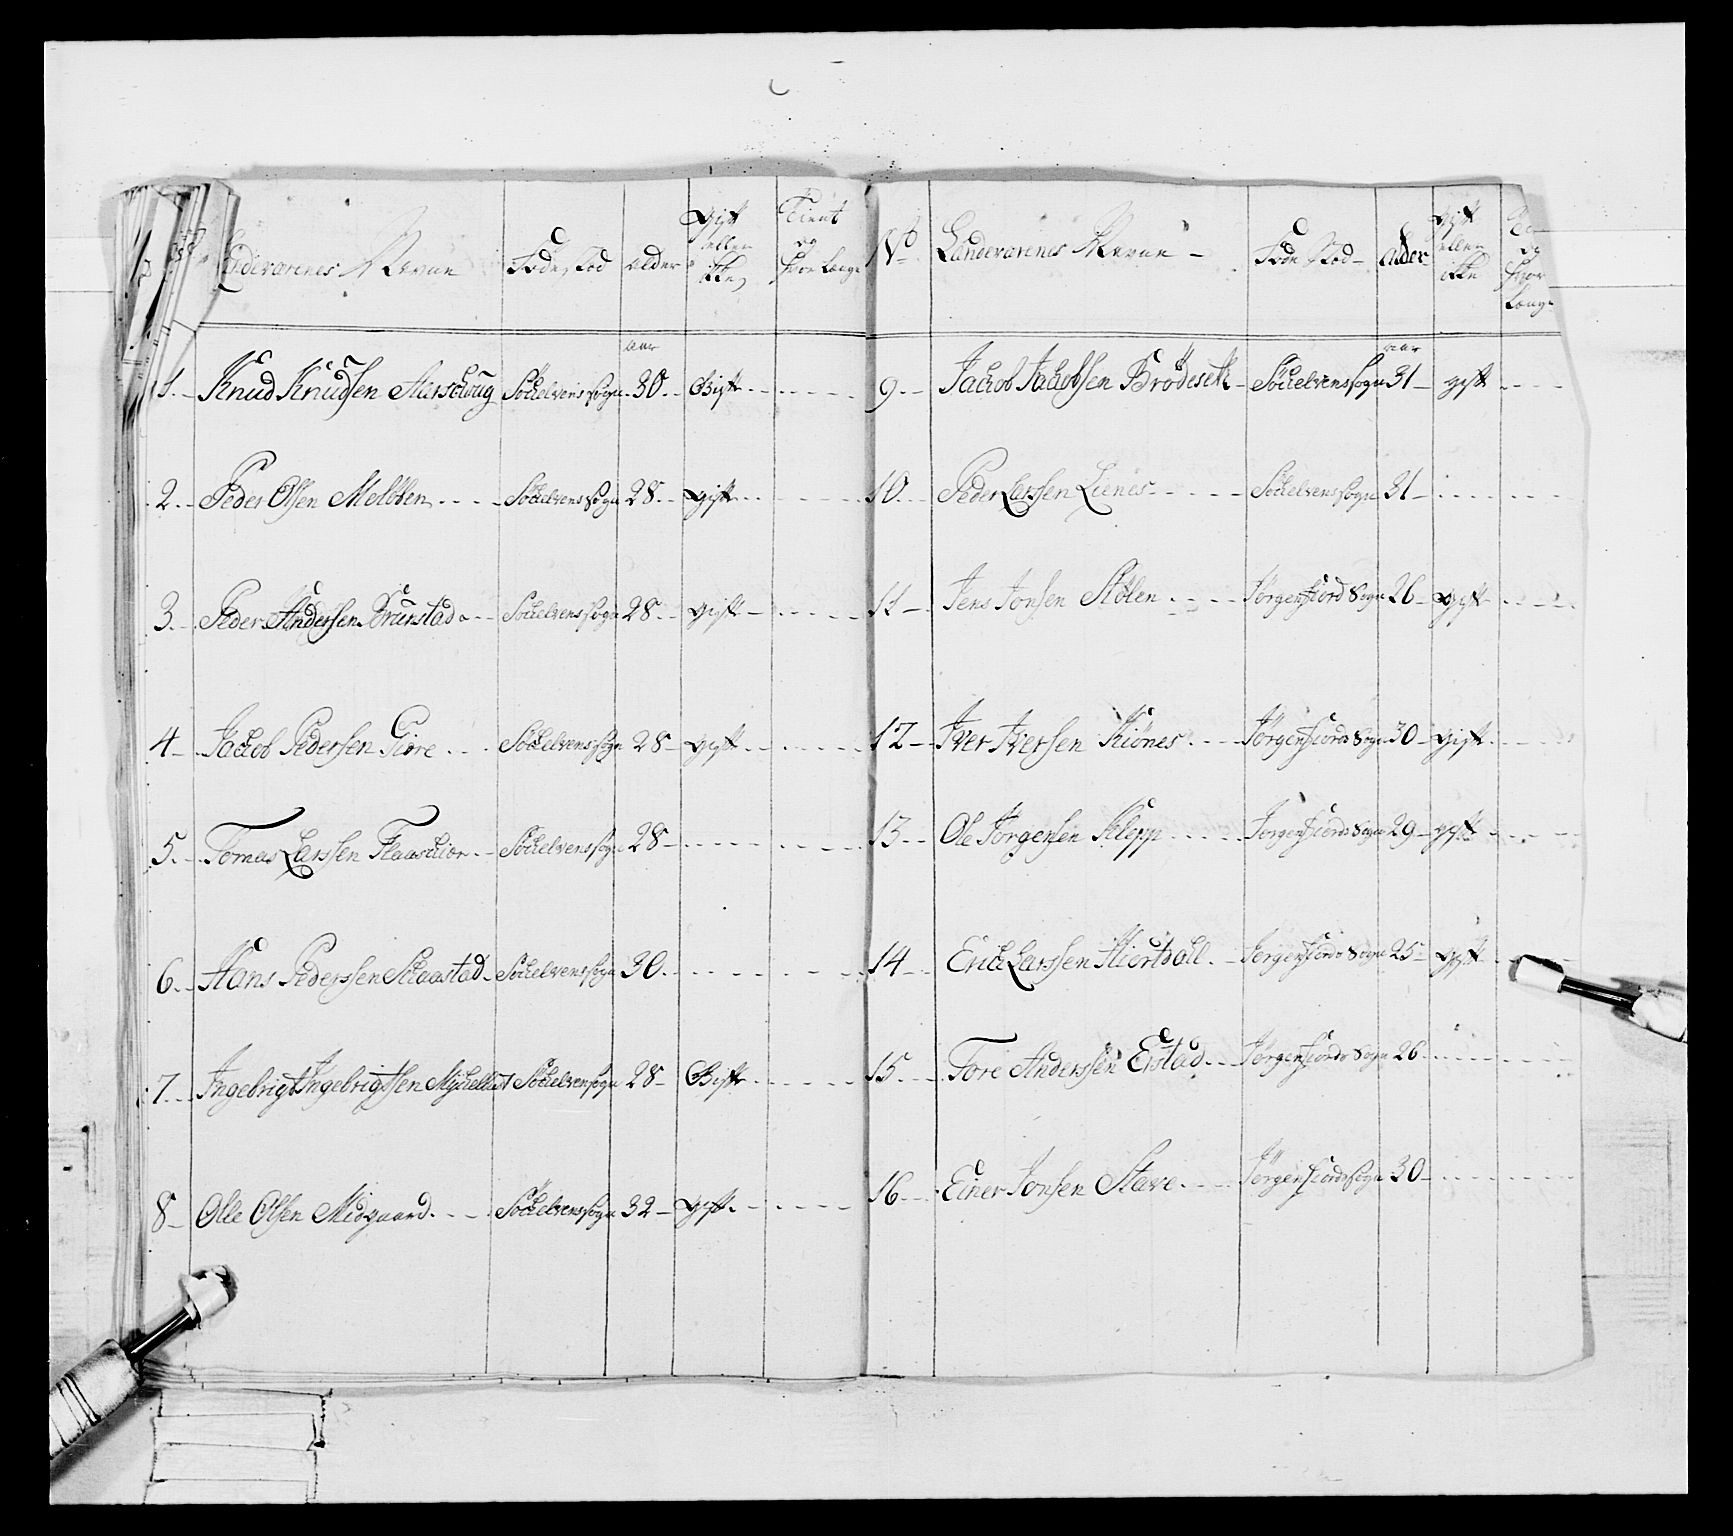 Landeværenes Navne Føde Stod alder Gift eller ikke Tient og hvor Længe
aar
1 Knud Knudsen Aarschoug Søchelvens sogn 30 Gift
2 Peder Olsen Melbben Søchelvens Sogn 28 gift
3 Peder Anderssen Brunstad Søchelvens sogn 28 gift
4 Jachob Pederssen Giøre Søchelvens sogn 28 gift
5 Tomas Larssen Flaaschior Søchelvens sogn 28
6 Hans Pederssen Schaastad Søchelvens sogn 30
7 Ingebrigt Ingebrigtsen Mychelbust Søchelvens sogn 28 Gift
8 Olle Olsen Midgaard Søchelvens sogn 32 gift
No Landeværenes Navne Føde Stod Alder gift eller ikke og hvor Længe
aar
9 Jachob Jachobsen Brødesett Søchelvens sogn 31 gift
10 Peder Larssen Lienes Søchelvens sogn 31
11 Jens Jonsen Stølen Jørgenfiord Sogn 26 gift
12 Iver Iversen Kiønes Jørgenfiords Sogn 30 gift
13 Ole Jørgensen Klepp Jørgenfiords Sogn 29 gift
14 Erich Larssen Hiortdall Jørgenfiords Sogn 25 gift
15 Tore Anderssen Erstad Jørgenfiords Sogn 26
16 Einer Jonsen Stave Jørgenfiords sogn 30